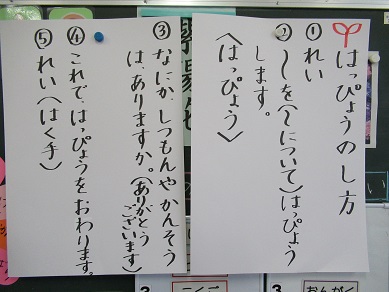 はっぴょうのし方
①れい
②〜を(〜について)はっぴょう
します。
〈はっぴょう〉
③なにか、しつもんやかんそう
は、ありますか。(ありがとう
ございます)
④これで、はっぴょうをおわります。
⑤れい(はく手)
こくご
おんがく